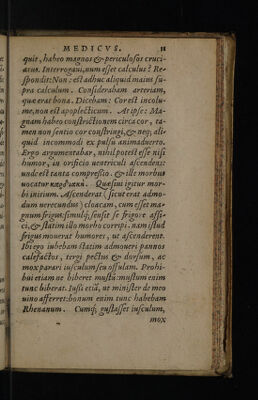 MEDICVS. 31
quit, habeo magnos & periculosos cruci-
atus. Interrogaui, num esset calculus? Re-
spondit: Non: est adhuc aliquid maius su-
pra calculum. Considerabam arteriam,
quæ erat bona. Dicebam: Cor est incolu-
me, non est apoplecticum. At ipse: Ma-
gnam habeo constrictionem circa cor, ta-
men non sentio cor constringi, & neq; ali-
quid incommodi ex pulsu animaduerto.
Ergo argumentabar, nihil potest esse nisi
humor, in orificio uentriculi ascendens:
unde est tanta compressio. & ille morbus
uocatur καρδιακή. Quæsiui igitur mor-
bi initium. Ascenderat (sicut erat admo-
dum uerecundus) cloacam, cum esset ma-
gnum frigus: simulq; sensit se frigore affi-
ci, & statim illo morbo corripi. nam illud
frigus mouerat humores, ut ascenderent.
Ibi ego iubebam statim admoueri pannos
calefactos, tergi pectus & dorsum, ac
mox parari iusculum seu offulam. Prohi-
bui etiam ne biberet mustū: mustum enim
tunc biberat. Iussi etiā, ut minister de meo
uino afferret: bonum enim tunc habebam
Rhenanum. Cumq; gustasset iusculum,
mox